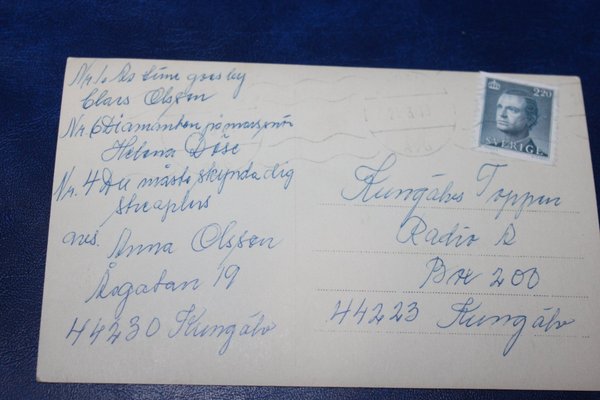 Nr. 1. As time goes by
Claes Olsson
Nr. 6 Diamanten på marssnö
Helena Döse
Nr. 4 Du måste skynda dig
Streaplers
avs. Anna Olsson
Ågatan 19
44230 Kungälv
2.20
SVERIGE
Kungälvs Toppen
Radio
Box 200
44223 Kungälv